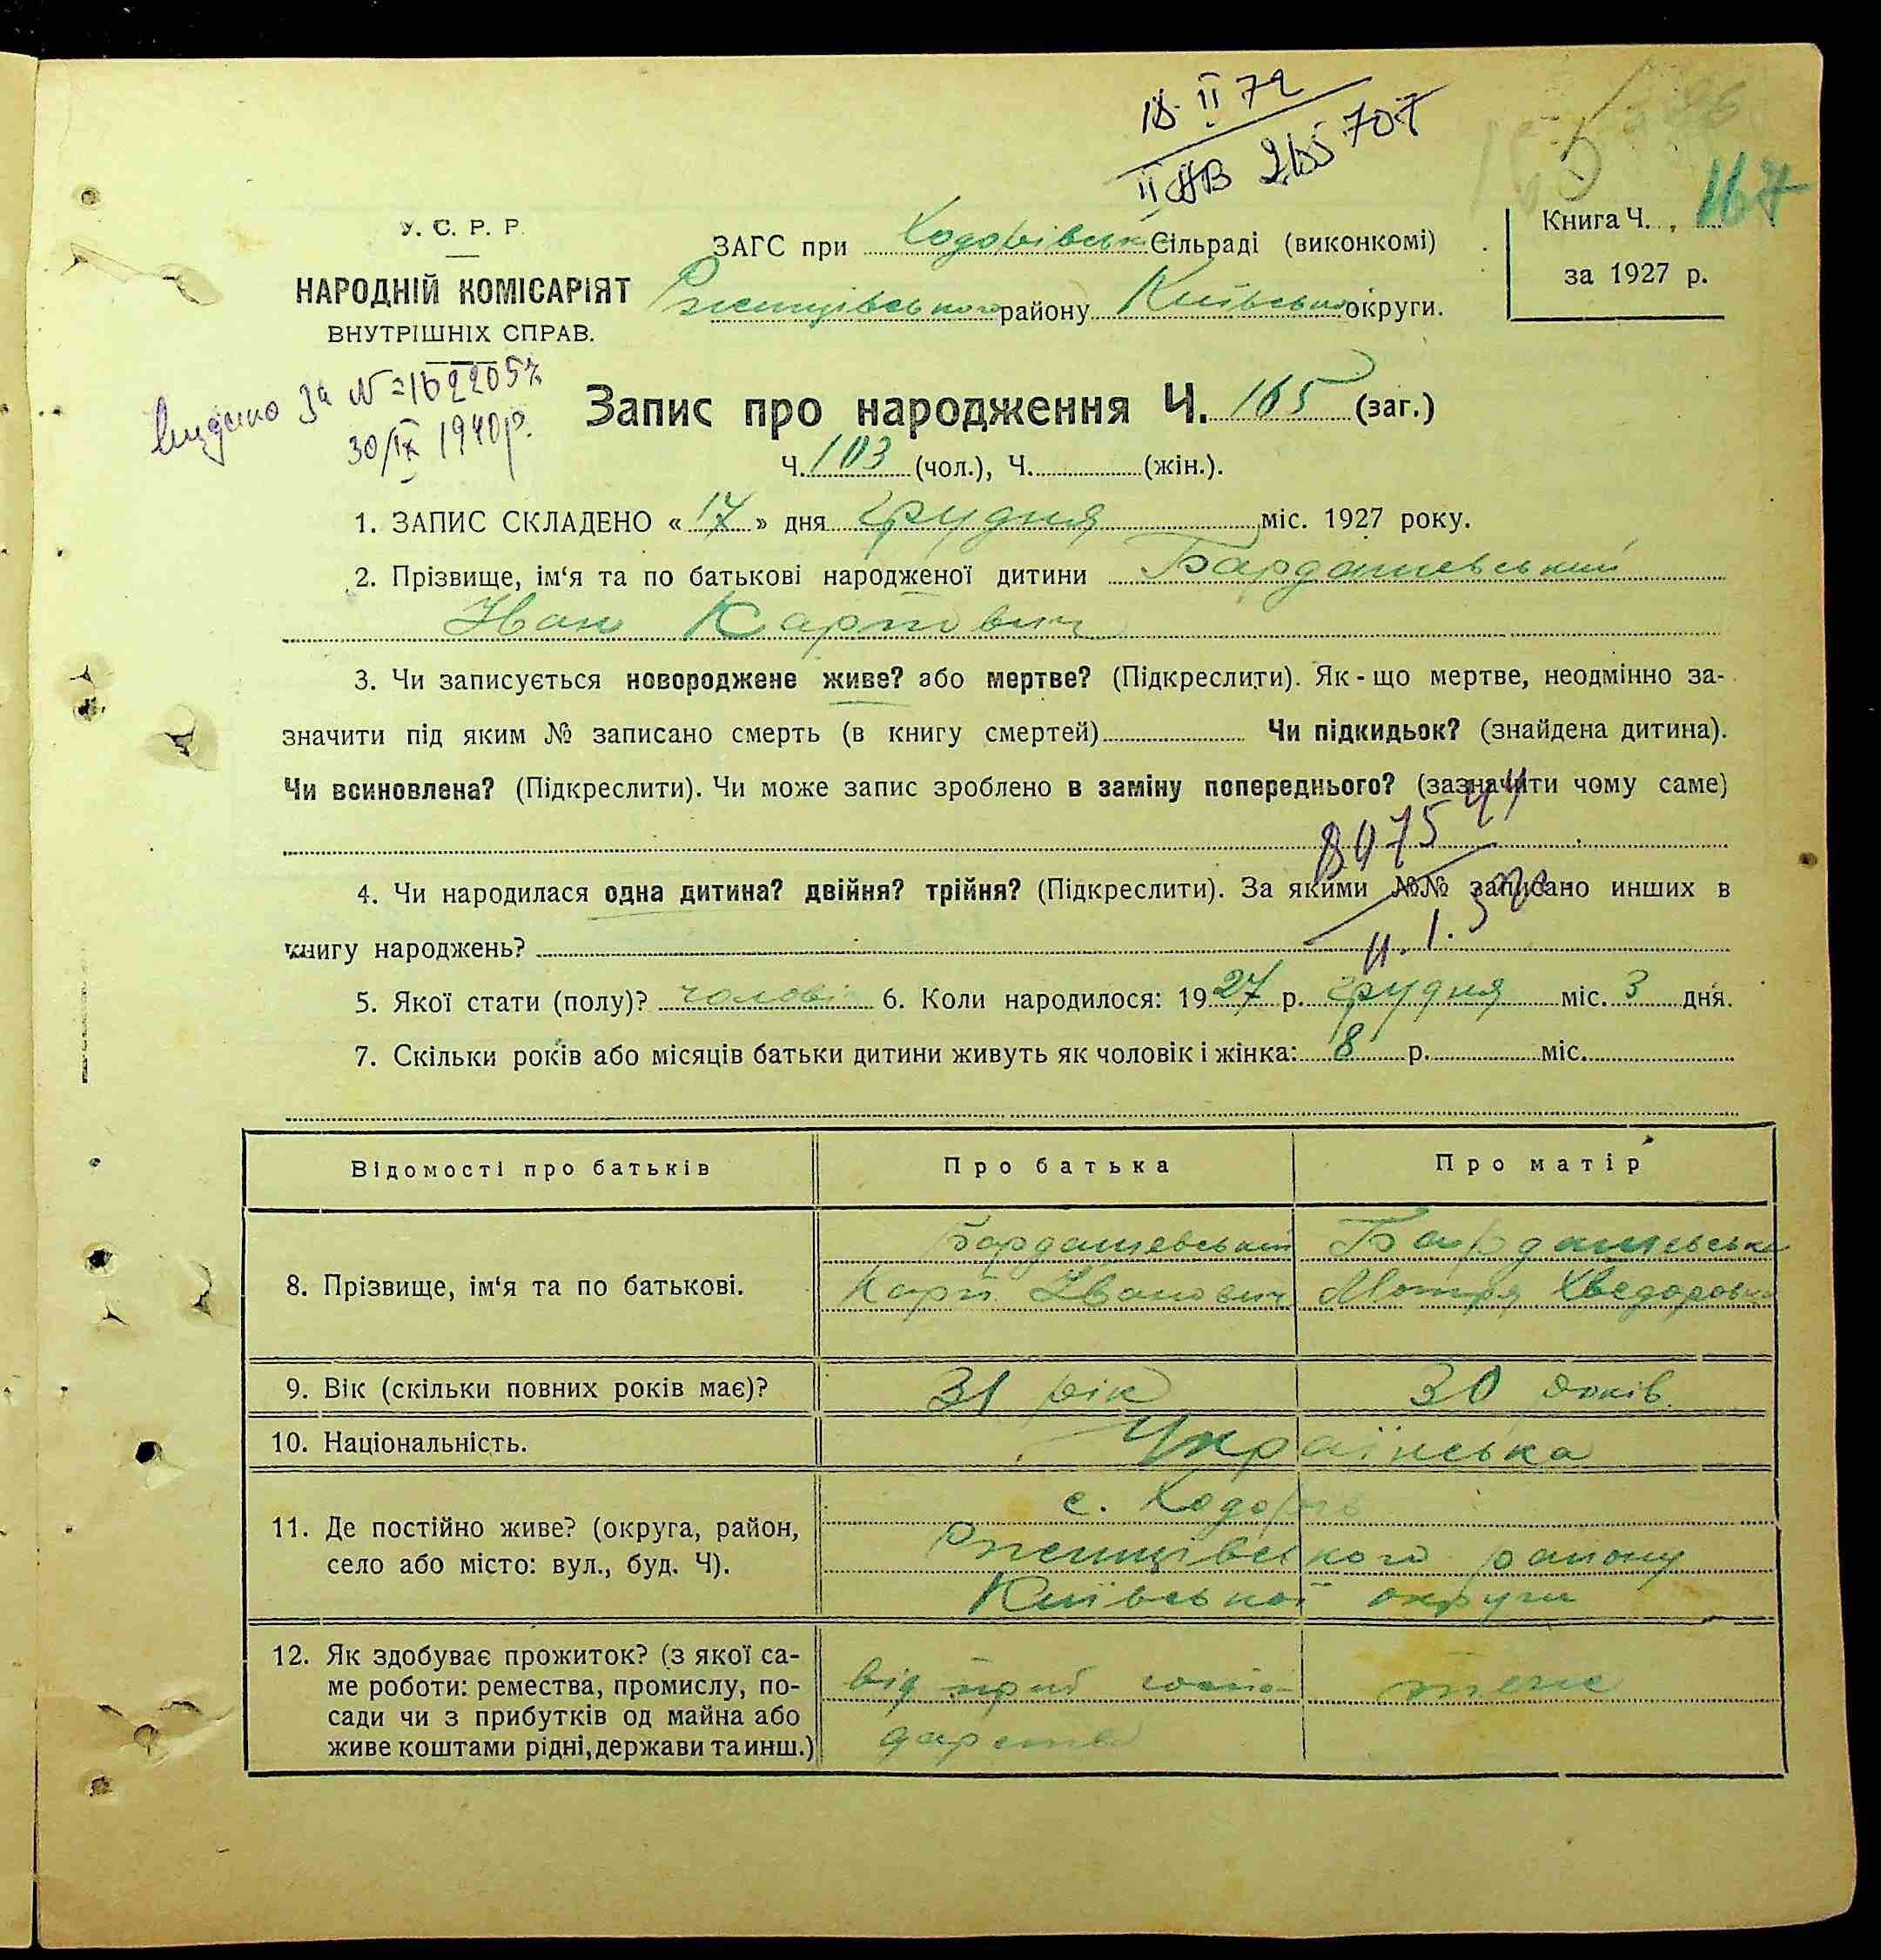 18. II 72
II АВ 265707
167
У. С. Р. Р.
НАРОДНІЙ КОМІСАРІЯТ
ВНУТРІШНІХ СПРАВ.
ЗАГС при Ходорівській Сільраді (виконкомі)
Ржищівського району Київської округи.
Книга Ч.
за 1927 р.
Видано за №
30/IX 1940 р.
Запис про народження Ч. 165 (заг.)
Ч. 103 (чол.), Ч. (жін.).
1. ЗАПИС СКЛАДЕНО « 17 » дня грудня міс. 1927 року.
2. Прізвище, ім‘я та по батькові народженої дитини Бардашевський
Іван Карпович
3. Чи записується новороджене живе? або мертве? (Підкреслити). Як-що мертве, неодмінно за-
значити під яким № записано смерть (в книгу смертей) Чи підкидьок? (знайдена дитина).
Чи всиновлена? (Підкреслити). Чи може запис зроблено в заміну попереднього? (зазначити чому саме)
4. Чи народилася одна дитина? двійня? трійня? (Підкреслити). За якими №№ записано инших в
книгу народжень?
5. Якої стати (полу)? чолові 6. Коли народилося: 1927 р. грудня міс. 3 дня.
7. Скільки років або місяців батьки дитини живуть як чоловік і жінка: 8 р. міс.
Відомості про батьків Про батька Про матір
8. Прізвище, ім‘я та по батькові.
Бардашевський Бардашевська
Карп Іванович Мотря Хведоровна
9. Вік (скільки повних років має)? 31 рік 30 років
10. Національність. Українська
11. Де постійно живе? (округа, район,
село або місто: вул., буд. Ч).
с. Ходорів
Ржищівського району
Київської округи
12. Як здобуває прожиток? (з якої са-
ме роботи: ремества, промислу, по-
сади чи з прибутків од майна або
живе коштами рідні, держави та инш.)
від приб госпо- теж
дарства